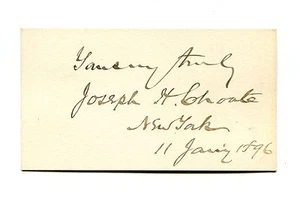 Yours very truly
Joseph H. Choate
New York
11 Jan'y 1896